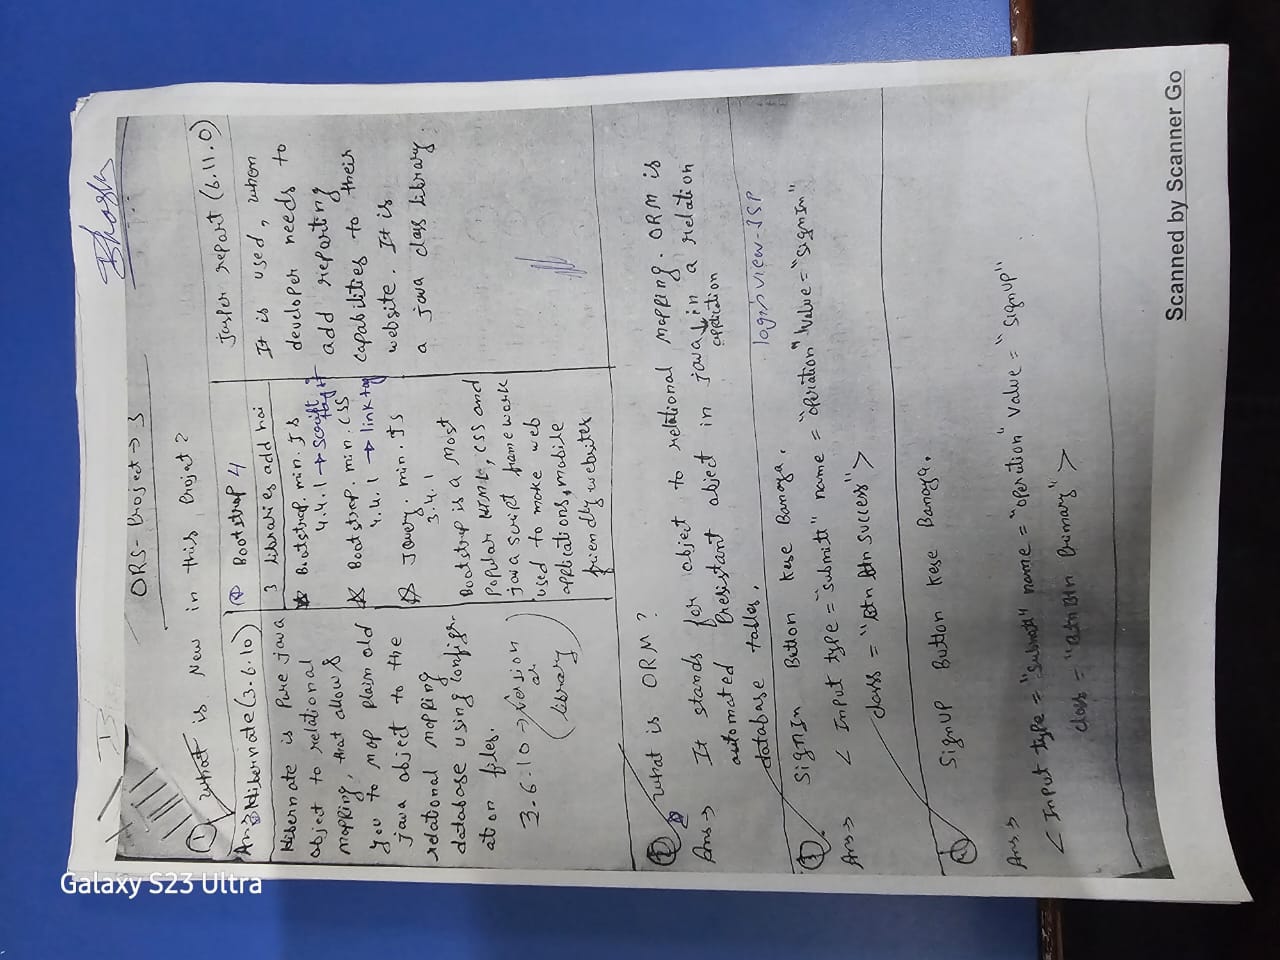 Bhosh
ORS-Project → 3
① What is New in this Project?
Ans ① Hibernate (3.6.10)
Hibernate is Pure java
object to relational
mapping, that allow s
you to map plain old
java object to the
relational mapping
database using configr-
ation files.
3.6.10 → version
or
(library)
① Bootstrap 4
3 libraries add hai
☆ Bootstrap.min.js
4.4.1 → script tag
☆ Bootstrap.min.css
4.4.1 → link tag
☆ Jquery.min.js
3.4.1
Bootstrap is a most
popular HTML, CSS and
java script framework
used to make web
applications, mobile
friendly websites
Jasper report (6.11.0)
It is used, when
developer needs to
add reporting
capabilities to their
website. It is
a java class library.
② What is ORM?
Ans → It stands for object to relational mapping. ORM is
automated Presistant object in java in a relation
application
database tables.
③ SignIn Button Kese Banaya.
loginview.JSP
Ans → < Input type = "submit" name = "operation" value = "SignIn"
class = "btn btn success" >
④ SignUP Button Kese Banaya.
Ans →
< Input type = "submit" name = "operation" value = "SignUP"
class = "btn btn Primary" >
Scanned by Scanner Go
Galaxy S23 Ultra